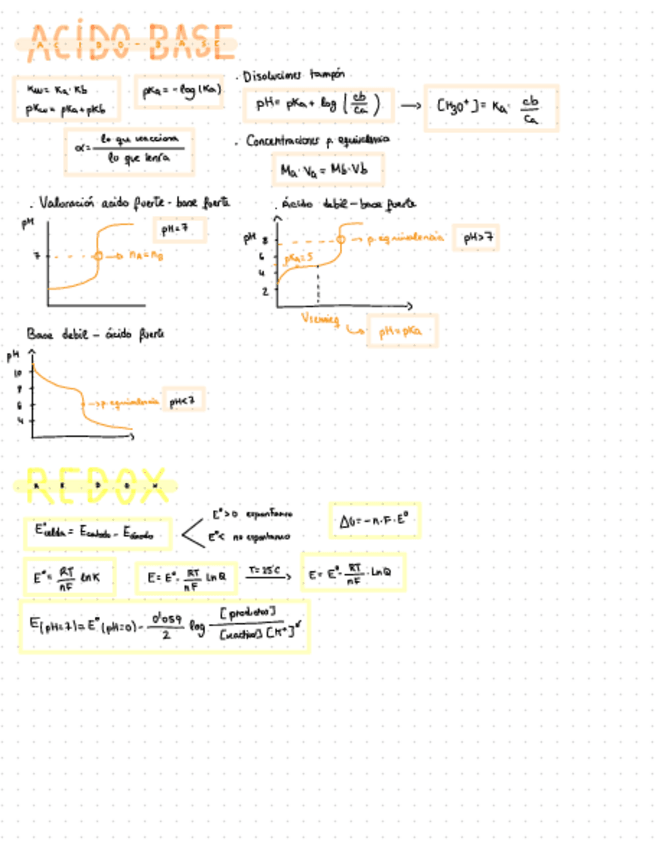 ACÍDO-BASE
ACIDO-BASE
Kw = Ka · Kb
pKw = pKa + pKb
pKa = -log (Ka)
α = lo que reacciona / lo que tenía
· Disoluciones tampón
pH = pKa + log (cb / ca) → [H3O+] = Ka · cb / ca
· Concentraciones p. equivalencia
Ma · Va = Mb · Vb
· Valoración acido fuerte - base fuerte
pH
7
→ nA = nB
pH = 7
· Ácido debil - base fuerte
pH
8
6
4
2
pKa = 5
→ p. equivalencia
pH > 7
pH = pKa
Base debil - ácido fuerte
pH
10
8
6
4
→ p. equivalencia
pH < 7
REDOX
REDOX
E°celda = Ecatodo - Eánodo
E° > 0 espontaneo
E° < no espontaneo
ΔG = -n · F · E°
E° = RT / nF lnK
E = E° - RT / nF LnQ
T = 25°C →
E = E° - RT / nF · LnQ
E(pH=7) = E° (pH=0) - 0'059 / 2 log [productos] / [reactivos] [H+]